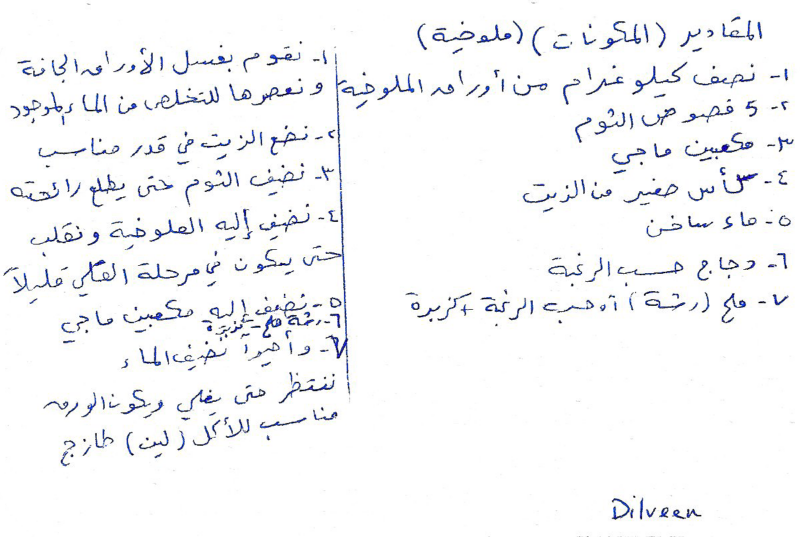 المقادير (المكونات) (ملوخية)
١- نصف كيلو غرام من أوراق الملوخية
٢- 5 فصوص الثوم
٣- مكعبين ماجي
٤- كأس صغير من الزيت
٥- ماء ساخن
٦- دجاج حسب الرغبة
٧- ملح (رشة) أو حسب الرغبة + كزبرة
١- نقوم بغسل الأوراق الجافة
ونعصرها للتخلص من الماء الموجود
٢- نضع الزيت في قدر مناسب
٣- نضيف الثوم حتى يطلع رائحته
٤- نضيف إليه الملوخية ونقلب
حتى يكون في مرحلة القلي قليلاً
٥- نضيف إليه مكعبين ماجي
٦- رشة ملح + كزبرة
٧- وأخيراً نضيف الماء
ننتظر حتى يغلي ويكون الورق
مناسب للأكل (لين) طازج
Dilveen